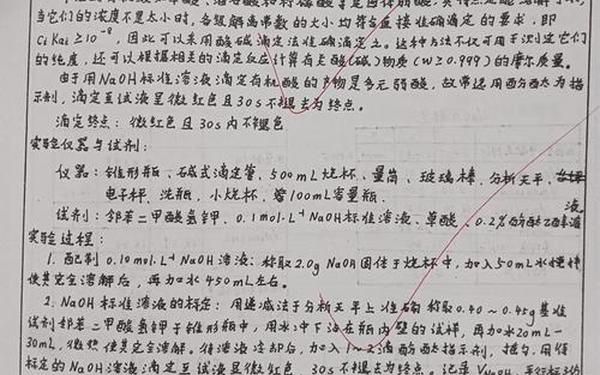 当它们的浓度不是太小时,各级解离常数的大小均符合直接准确滴定的要求,即
CiKai≥10⁻⁸,因此可以采用酸碱滴定法准确滴定之。这种方法不仅可用于测定它们
的纯度,还可以根据相关的滴定反应计算有关酸(碱)物质(w≥0.999)的摩尔质量。
由于用NaOH标准溶液滴定有机酸的产物是多元弱酸,故常选用酚酞为指
示剂,滴定至试液呈微红色且30s不褪去为终点。
滴定终点:微红色且30s内不褪色
实验仪器与试剂:
仪器:锥形瓶、碱式滴定管、500mL烧杯、量筒、玻璃棒、分析天平、
电子秤、洗瓶、小烧杯、100mL容量瓶
试剂:邻苯二甲酸氢钾、0.1mol·L⁻¹NaOH标准溶液、草酸、0.2%酚酞乙醇溶液
实验过程:
1.配制0.10mol·L⁻¹NaOH溶液:称取2.0gNaOH固体于烧杯中,加入50mL水搅拌
使其完全溶解后,再加水450mL左右。
2.NaOH标准溶液的标定:用递减法于分析天平上准确称取0.40~0.45g基准
试剂邻苯二甲酸氢钾于锥形瓶中,用水冲下沾在瓶内壁的试样,再加水20mL-
30mL,微热使其完全溶解。待溶液冷却后,加入1~2滴酚酞指示剂,摇匀,用待
标定的NaOH溶液滴定至试液呈微红色,30s不褪去为终点。记录VNaOH,平行标3份